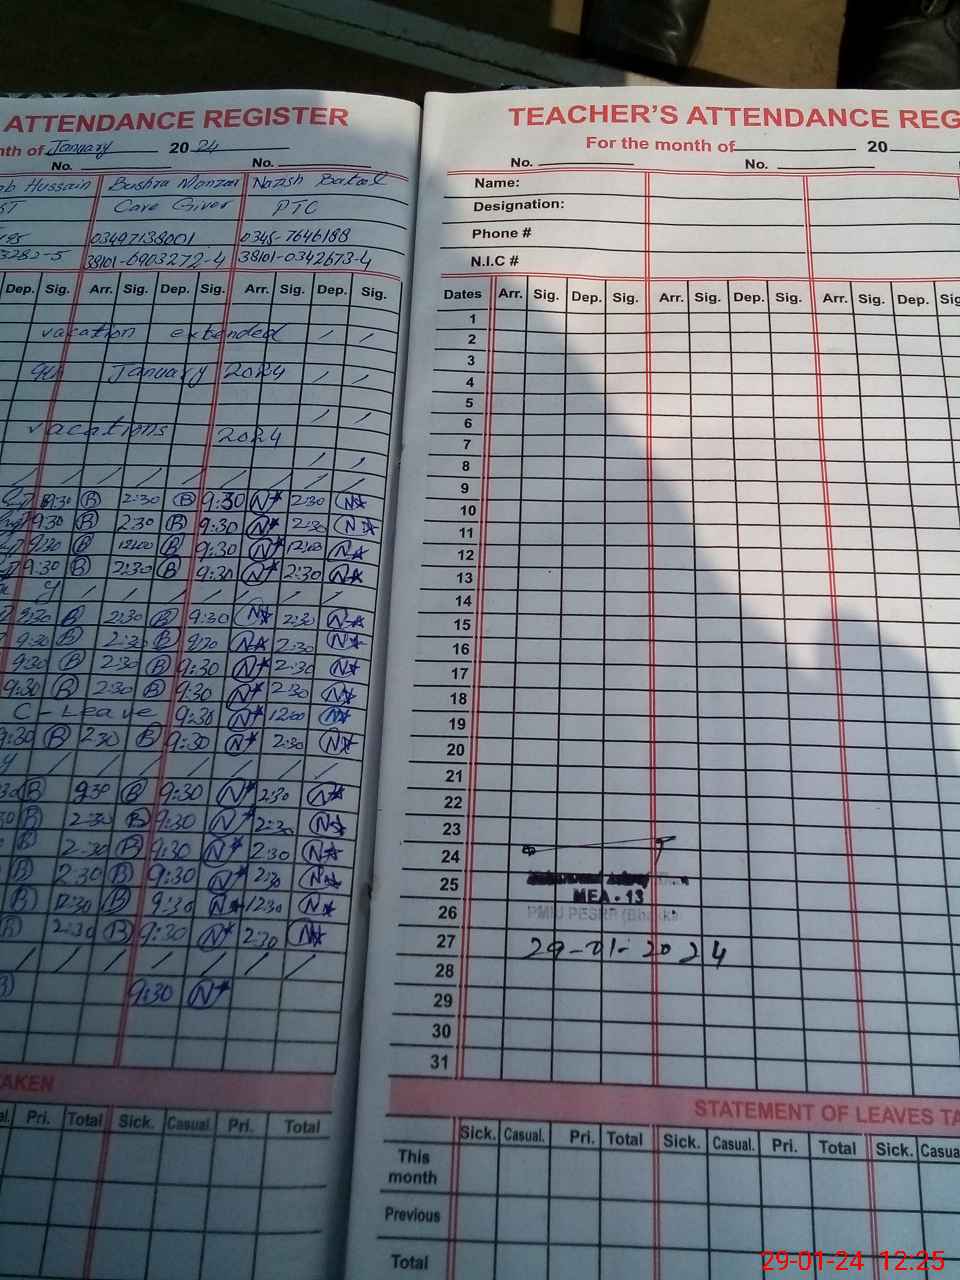 ATTENDANCE REGISTER
nth of January 20 24
No. No.
ab Hussain Bushra Manzar Nazish Batool
ST Care Giver PTC
03497138001 0345-7646188
3282-5 38101-6903272-4 38101-0342673-4
Dep. Sig. Arr. Sig. Dep. Sig. Arr. Sig. Dep. Sig.
vacation extended / /
9th January 2024 / /
/ /
vacations 2024
/ /
/ / / / / / / / / /
9:30 B 2:30 B 9:30 N* 2:30 N*
9:30 B 2:30 B 9:30 N* 2:30 N*
9:30 B 12:00 B 9:30 N* 12:00 N*
9:30 B 2:30 B 9:30 N* 2:30 N*
y / / / / / / / /
9:30 B 2:30 B 9:30 N* 2:30 N*
9:30 B 2:30 B 9:30 N* 2:30 N*
9:30 B 2:30 B 9:30 N* 2:30 N*
9:30 B 2:30 B 9:30 N* 2:30 N*
C-Leave 9:30 N* 12:00 N*
9:30 B 2:30 B 9:30 N* 2:30 N*
y / / / / / / / /
B B 9:30 N* 2:30 N*
B 2:30 B 9:30 N* 2:30 N*
B 2:30 B 9:30 N* 2:30 N*
B 2:30 B 9:30 N* 2:30 N*
B 12:30 B 9:30 N* 12:30 N*
B 2:30 B 9:30 N* 2:30 N*
/ / / / / / / /
B 9:30 N*
TAKEN
al. Pri. Total Sick. Casual. Pri. Total
TEACHER'S ATTENDANCE REG
For the month of 20
No. No.
Name:
Designation:
Phone #
N.I.C #
Dates Arr. Sig. Dep. Sig. Arr. Sig. Dep. Sig. Arr. Sig. Dep. Sig
1
2
3
4
5
6
7
8
9
10
11
12
13
14
15
16
17
18
19
20
21
22
23
24
25
MEA - 13
26 PMIU PESRP (Bhakkar)
27 29-01-2024
28
29
30
31
STATEMENT OF LEAVES TA
Sick. Casual. Pri. Total Sick. Casual. Pri. Total Sick. Casua
This
month
Previous
Total
29-01-24 12.25